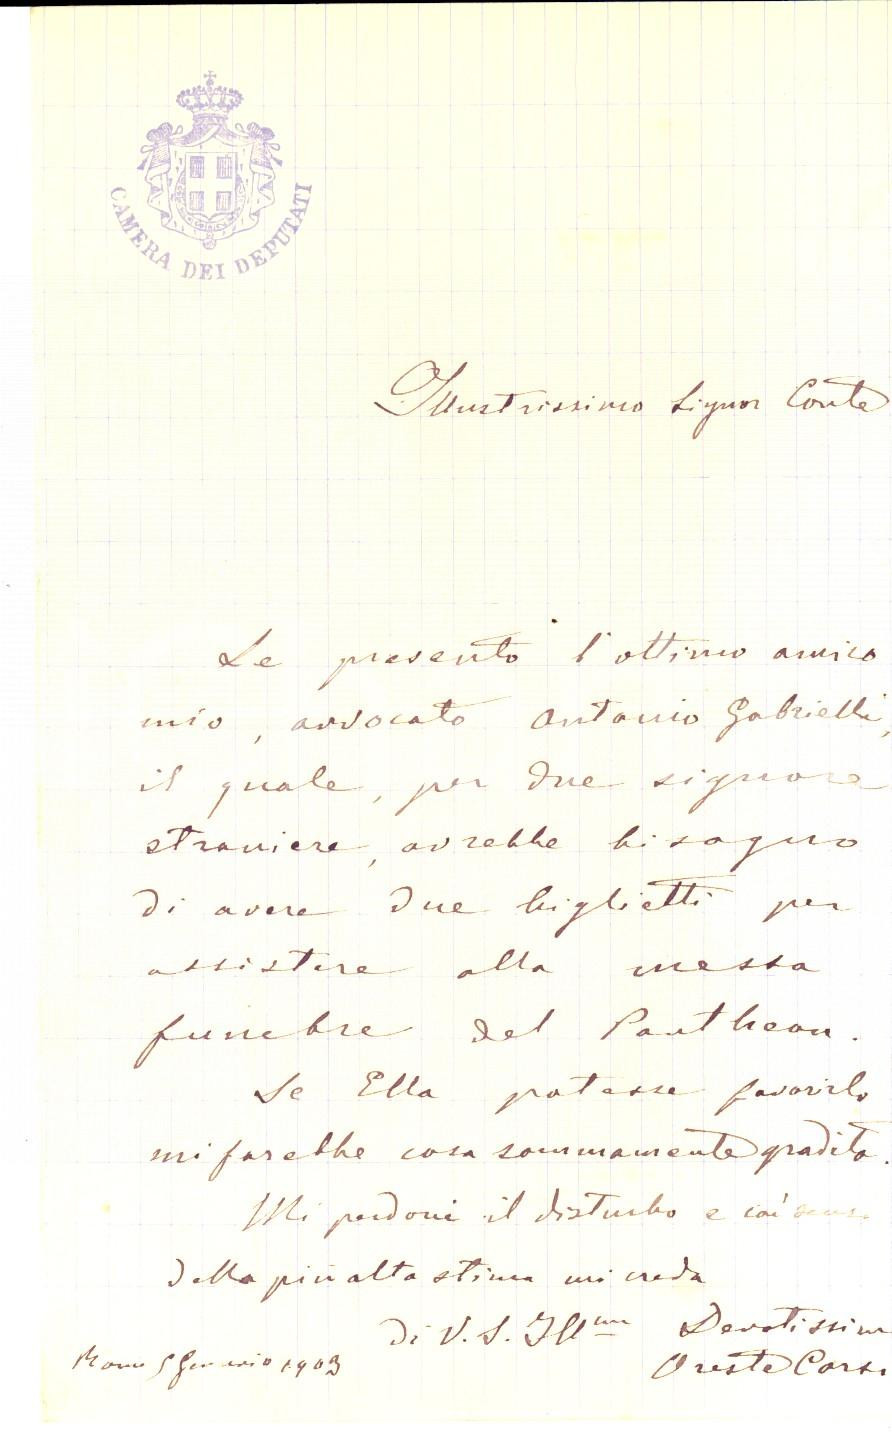 CAMERA DEI DEPUTATI
Illustrissimo Signor Conte
Le presento l'ottimo amico
mio, avvocato Antonio Gabrielli,
il quale, per due signore
straniere, avrebbe bisogno
di avere due biglietti per
assistere alla messa
funebre del Pantheon.
Se Ella potesse favorirlo
mi farebbe cosa sommamente gradita.
Mi perdoni il disturbo e coi sensi
della più alta stima mi creda
di V. S. Ill.ma Devotissimo
Roma 5 Gennaio 1903 Oreste Corsi